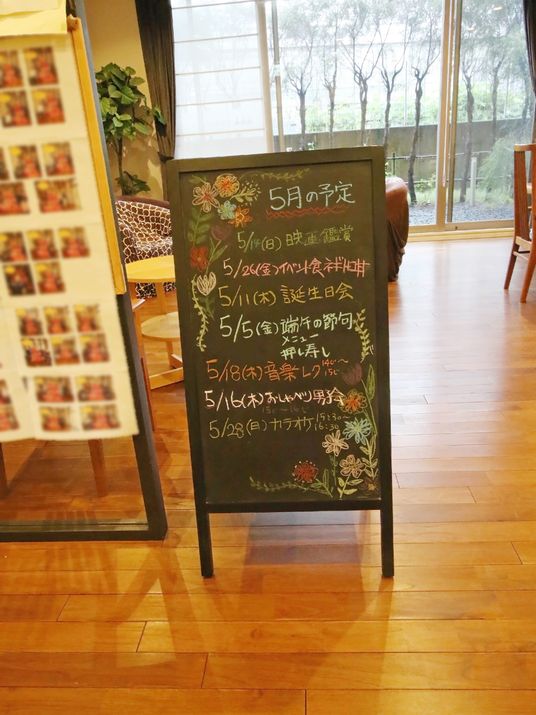 5月の予定
5/14(日)映画鑑賞
5/26(金)イベント食ネギトロ丼
5/11(木)誕生日会
5/5(金)端午の節句
メニュー
押し寿し
5/18(木)音楽レク 14:〜15:〜
5/16(木)おしゃべり男爵
15:〜16:〜
5/28(日)カラオケ 15:30〜16:30